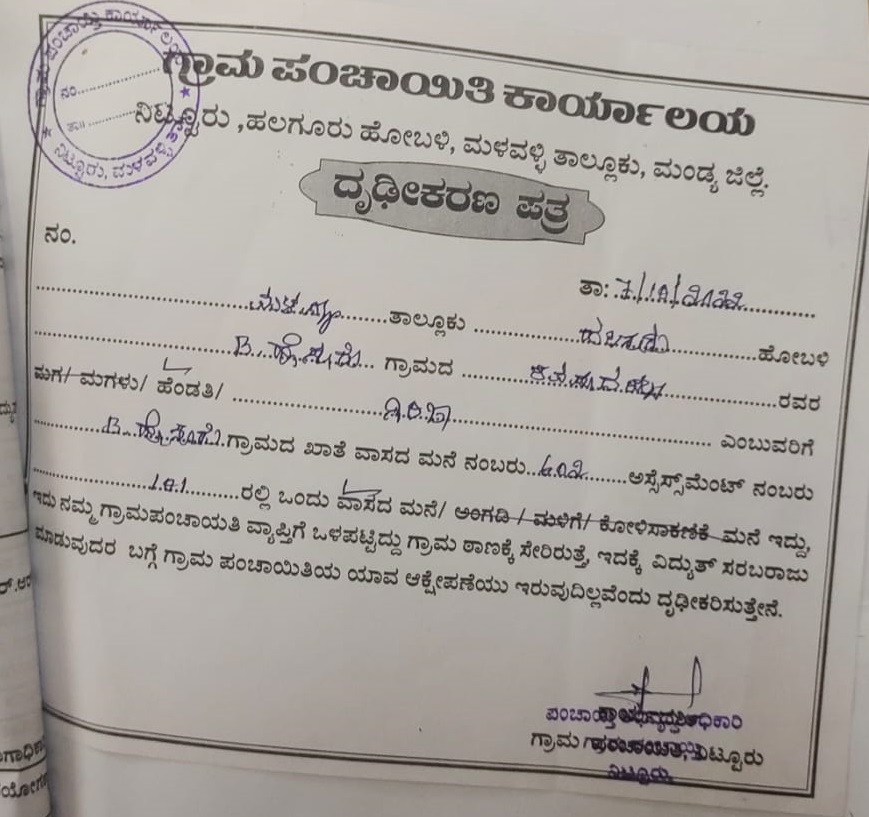 ಗ್ರಾಮ ಪಂಚಾಯಿತಿ ಕಾರ್ಯಾಲಯ
ನಂ.
ತಾ॥
ನಿಟ್ಟೂರು, ಮಳವಳ್ಳಿ ತಾ॥
ಗ್ರಾಮ ಪಂಚಾಯಿತಿ ಕಾರ್ಯಾಲಯ
ನಿಟ್ಟೂರು ,ಹಲಗೂರು ಹೋಬಳಿ, ಮಳವಳ್ಳಿ ತಾಲ್ಲೂಕು, ಮಂಡ್ಯ ಜಿಲ್ಲೆ.
ದೃಢೀಕರಣ ಪತ್ರ
ನಂ.
ತಾ: 7/10/2022
ಮಳವಳ್ಳಿ ತಾಲ್ಲೂಕು ಹಲಗೂರು ಹೋಬಳಿ
B. ಗ್ರಾಮದ ರವರ
ಮಗ/ ಮಗಳು/ ಹೆಂಡತಿ/ ಎಂಬುವರಿಗೆ
B. ಗ್ರಾಮದ ಖಾತೆ ವಾಸದ ಮನೆ ನಂಬರು ಅಸ್ಸೆಸ್ಸ್‌ಮೆಂಟ್ ನಂಬರು
ರಲ್ಲಿ ಒಂದು ವಾಸದ ಮನೆ/ ಅಂಗಡಿ / ಮಳಿಗೆ/ ಕೋಳಿಸಾಕಣಿಕೆ ಮನೆ ಇದ್ದು,
ಇದು ನಮ್ಮ ಗ್ರಾಮಪಂಚಾಯತಿ ವ್ಯಾಪ್ತಿಗೆ ಒಳಪಟ್ಟಿದ್ದು ಗ್ರಾಮ ಠಾಣಕ್ಕೆ ಸೇರಿರುತ್ತೆ, ಇದಕ್ಕೆ ವಿದ್ಯುತ್ ಸರಬರಾಜು
ಮಾಡುವುದರ ಬಗ್ಗೆ ಗ್ರಾಮ ಪಂಚಾಯಿತಿಯ ಯಾವ ಆಕ್ಷೇಪಣೆಯು ಇರುವುದಿಲ್ಲವೆಂದು ದೃಢೀಕರಿಸುತ್ತೇನೆ.
ಗ್ರಾಮ ನಿಟ್ಟೂರು
ನಿಟ್ಟೂರು